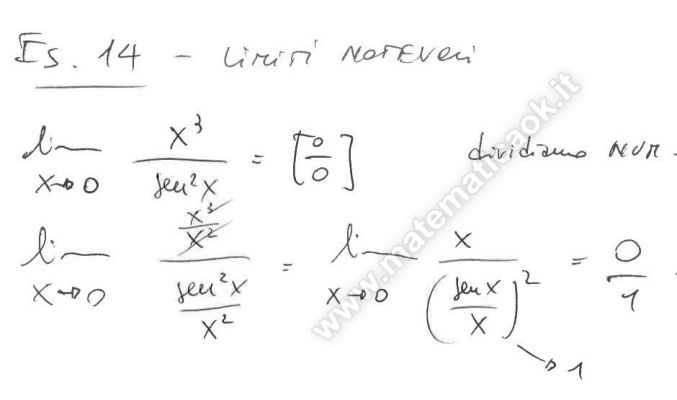 Es. 14 - LIMITI NOTEVOLI
lim x→0 x³/sen²x = [0/0] dividiamo NUM.
lim x→0 (x³/x²)/(sen²x/x²) = lim x→0 x/(sen x/x)² = 0/1
→ 1
www.matematicaok.it